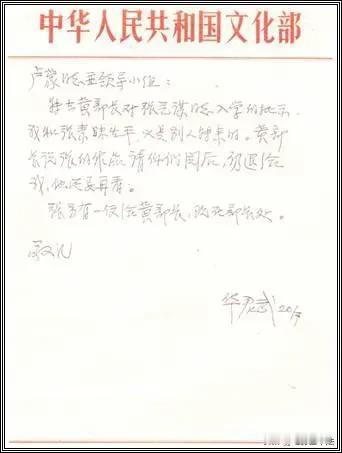 中华人民共和国文化部
卢蒙同志并领导小组：
转去黄部长对张艺谋同志入学的批示
我和张素昧生平，又是别人转来的。黄部
长说张的作品请你们阅后，仍退给
我，他还要再看。
张另有一信给黄部长，现在部长处。
敬礼
华君武 20/7